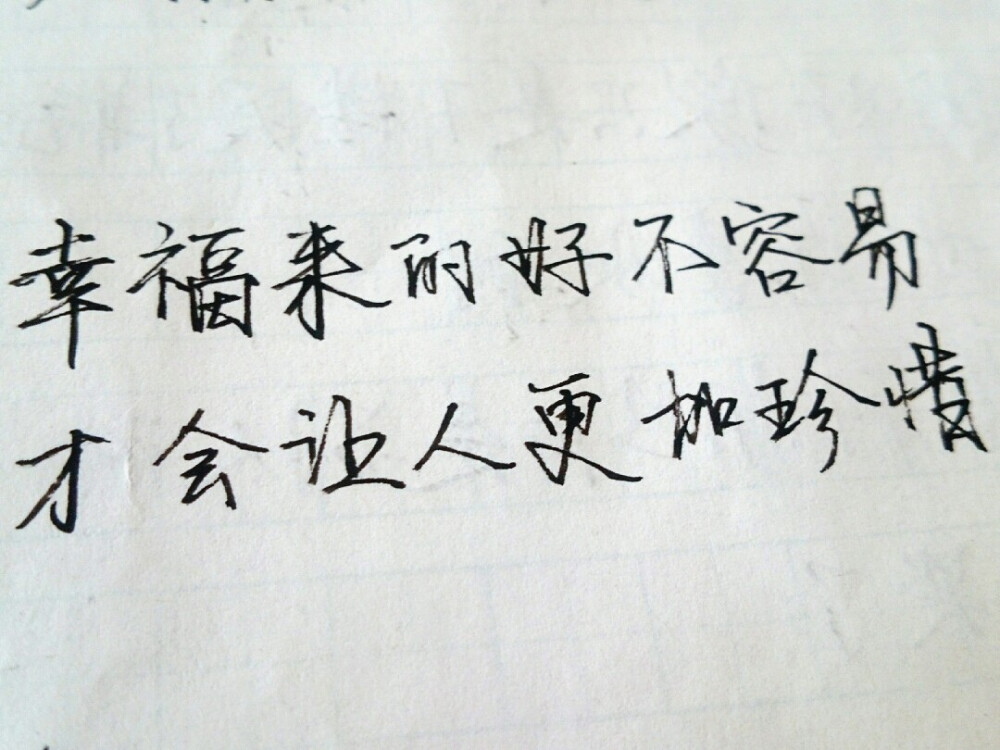 幸福来的好不容易
才会让人更加珍惜